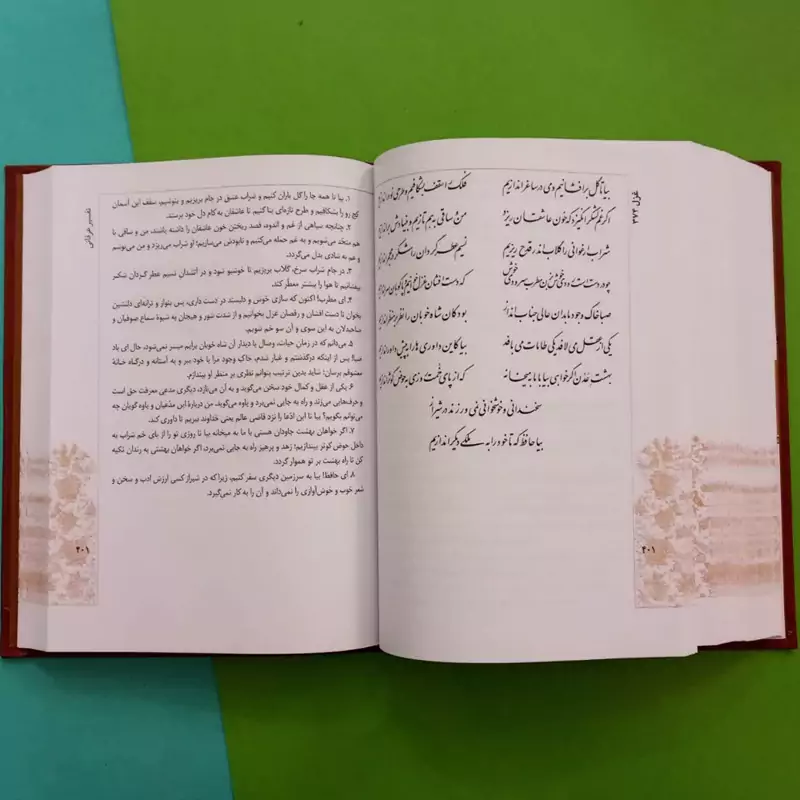 غزل ۳۷۴
بیا تا گل برافشانیم و می در ساغر اندازیم فلک را سقف بشکافیم و طرحی نو در اندازیم
اگر غم لشکر انگیزد که خون عاشقان ریزد من و ساقی به هم تازیم و بنیادش براندازیم
شراب ارغوانی را گلاب اندر قدح ریزیم نسیم عطر گردان را شکر در مجمر اندازیم
چو در دست است رودی خوش بزن مطرب سرودی خوش که دست افشان غزل خوانیم و پاکوبان سر اندازیم
صبا خاک وجود ما بدان عالی جناب انداز بود کان شاه خوبان را نظر بر منظر اندازیم
یکی از عقل می لافد یکی طامات می بافد بیا کاین داوری ها را به پیش داور اندازیم
بهشت عدن اگر خواهی بیا با ما به میخانه که از پای خمت روزی به حوض کوثر اندازیم
سخندانی و خوشخوانی نمی ورزند در شیراز
بیا حافظ که تا خود را به ملکی دیگر اندازیم
۴۰۱
تفسیر عرفانی
۱. بیا تا همه جا را گل باران کنیم و شراب عشق در جام بریزیم و بنوشیم، سقف این آسمان
کج رو را بشکافیم و طرح تازه‌ای بنا کنیم تا عاشقان به کام دل خود برسند.
۲. چنانچه سپاهی از غم و اندوه، قصد ریختن خون عاشقان را داشته باشند، من و ساقی با
هم متحد می‌شویم و به غم حمله می‌کنیم و نابودش می‌سازیم؛ او شراب می‌ریزد و من می‌نوشم
و غم به شادی بدل می‌گردد.
۳. در جام شراب سرخ، گلاب بریزیم تا خوشبو شود و در آتشدان نسیم عطر گردان شکر
بیفشانیم تا هوا را بیشتر معطّر کند.
۴. ای مطرب! اکنون که سازی خوش و دلپسند در دست داری، پس بنواز و ترانه‌ای دلنشین
بخوان تا دست افشان و رقصان غزل بخوانیم و از شدت شور و هیجان به شیوۀ سماع صوفیان و
صاحبدلان به این سوی و آن سو خم شویم.
۵. می‌دانم که در زمان حیات، وصال یا دیدار آن شاه خوبان برایم میسر نمی‌شود، حال ای باد
صبا! پس از اینکه درگذشتم و غبار شدم، خاک وجود مرا با خود ببر و به آستانه و درگاه خانۀ
معشوقم برسان؛ شاید بدین ترتیب بتوانم نظری بر منظر او بیندازم.
۶. یکی از عقل و کمال خود سخن می‌گوید و به آن می‌نازد، دیگری مدعی معرفت حق است
و حرف‌هایی می‌زند و راه به جایی نمی‌برد و یاوه می‌گوید، من دربارۀ این مدّعیان و یاوه گویان چه
می‌توانم بگویم؟ بیا تا این ادّعا را نزد قاضی عالم یعنی خداوند ببریم تا داوری کند.
۷. اگر خواهان بهشت جاودان هستی با ما به میخانه بیا تا روزی تو را از پای خم شراب به
داخل حوض کوثر بیندازیم؛ زهد و پرهیز راه به جایی نمی‌برد، اگر خواهان بهشتی به رندان تکیه
کن تا راه بهشت بر تو هموار گردد.
۸. ای حافظ! بیا به سرزمین دیگری سفر کنیم، زیرا که در شیراز کسی ارزش ادب و سخن و
شعر خوب و خوش‌آوازی را نمی‌داند و آن را به کار نمی‌گیرد.
۴۰۱